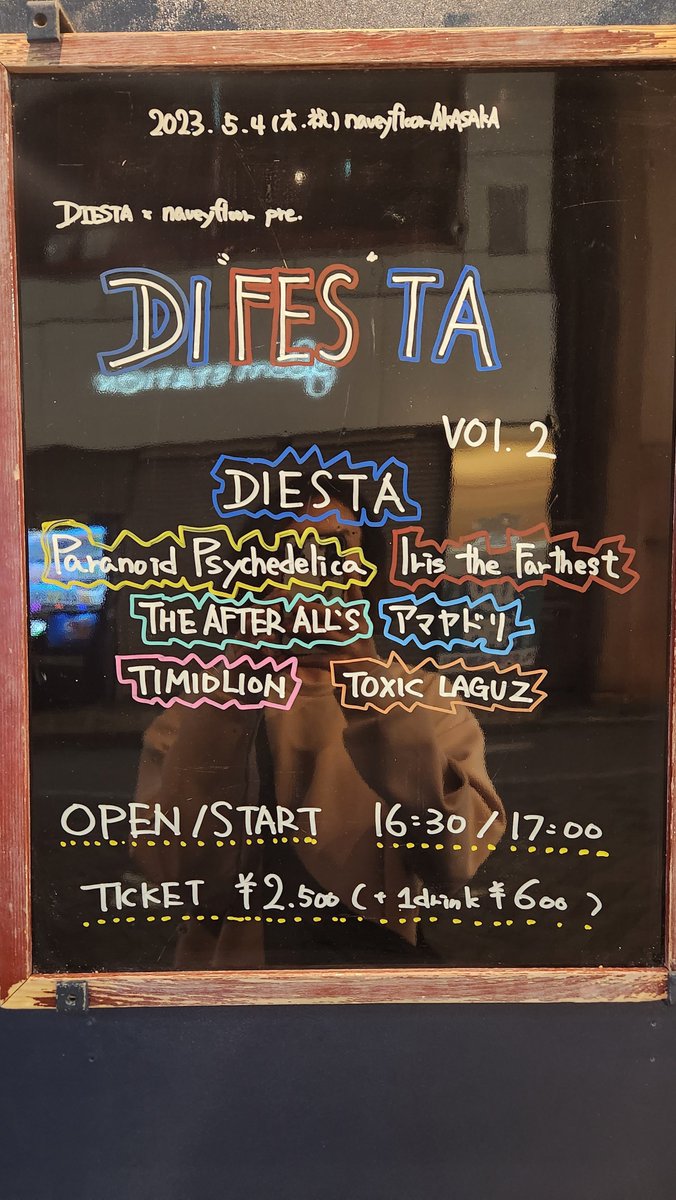 2023.5.4(木・祝) naveyfloor AKASAKA
DIESTA × naveyfloor pre.
DI"FES"TA
VOl. 2
DIESTA
Paranoid Psychedelica
Iris the Farthest
THE AFTER ALL'S
アマヤドリ
TIMIDLION
TOXIC LAGUZ
OPEN/START 16:30/17:00
TICKET ¥2.500(+1drink ¥600)